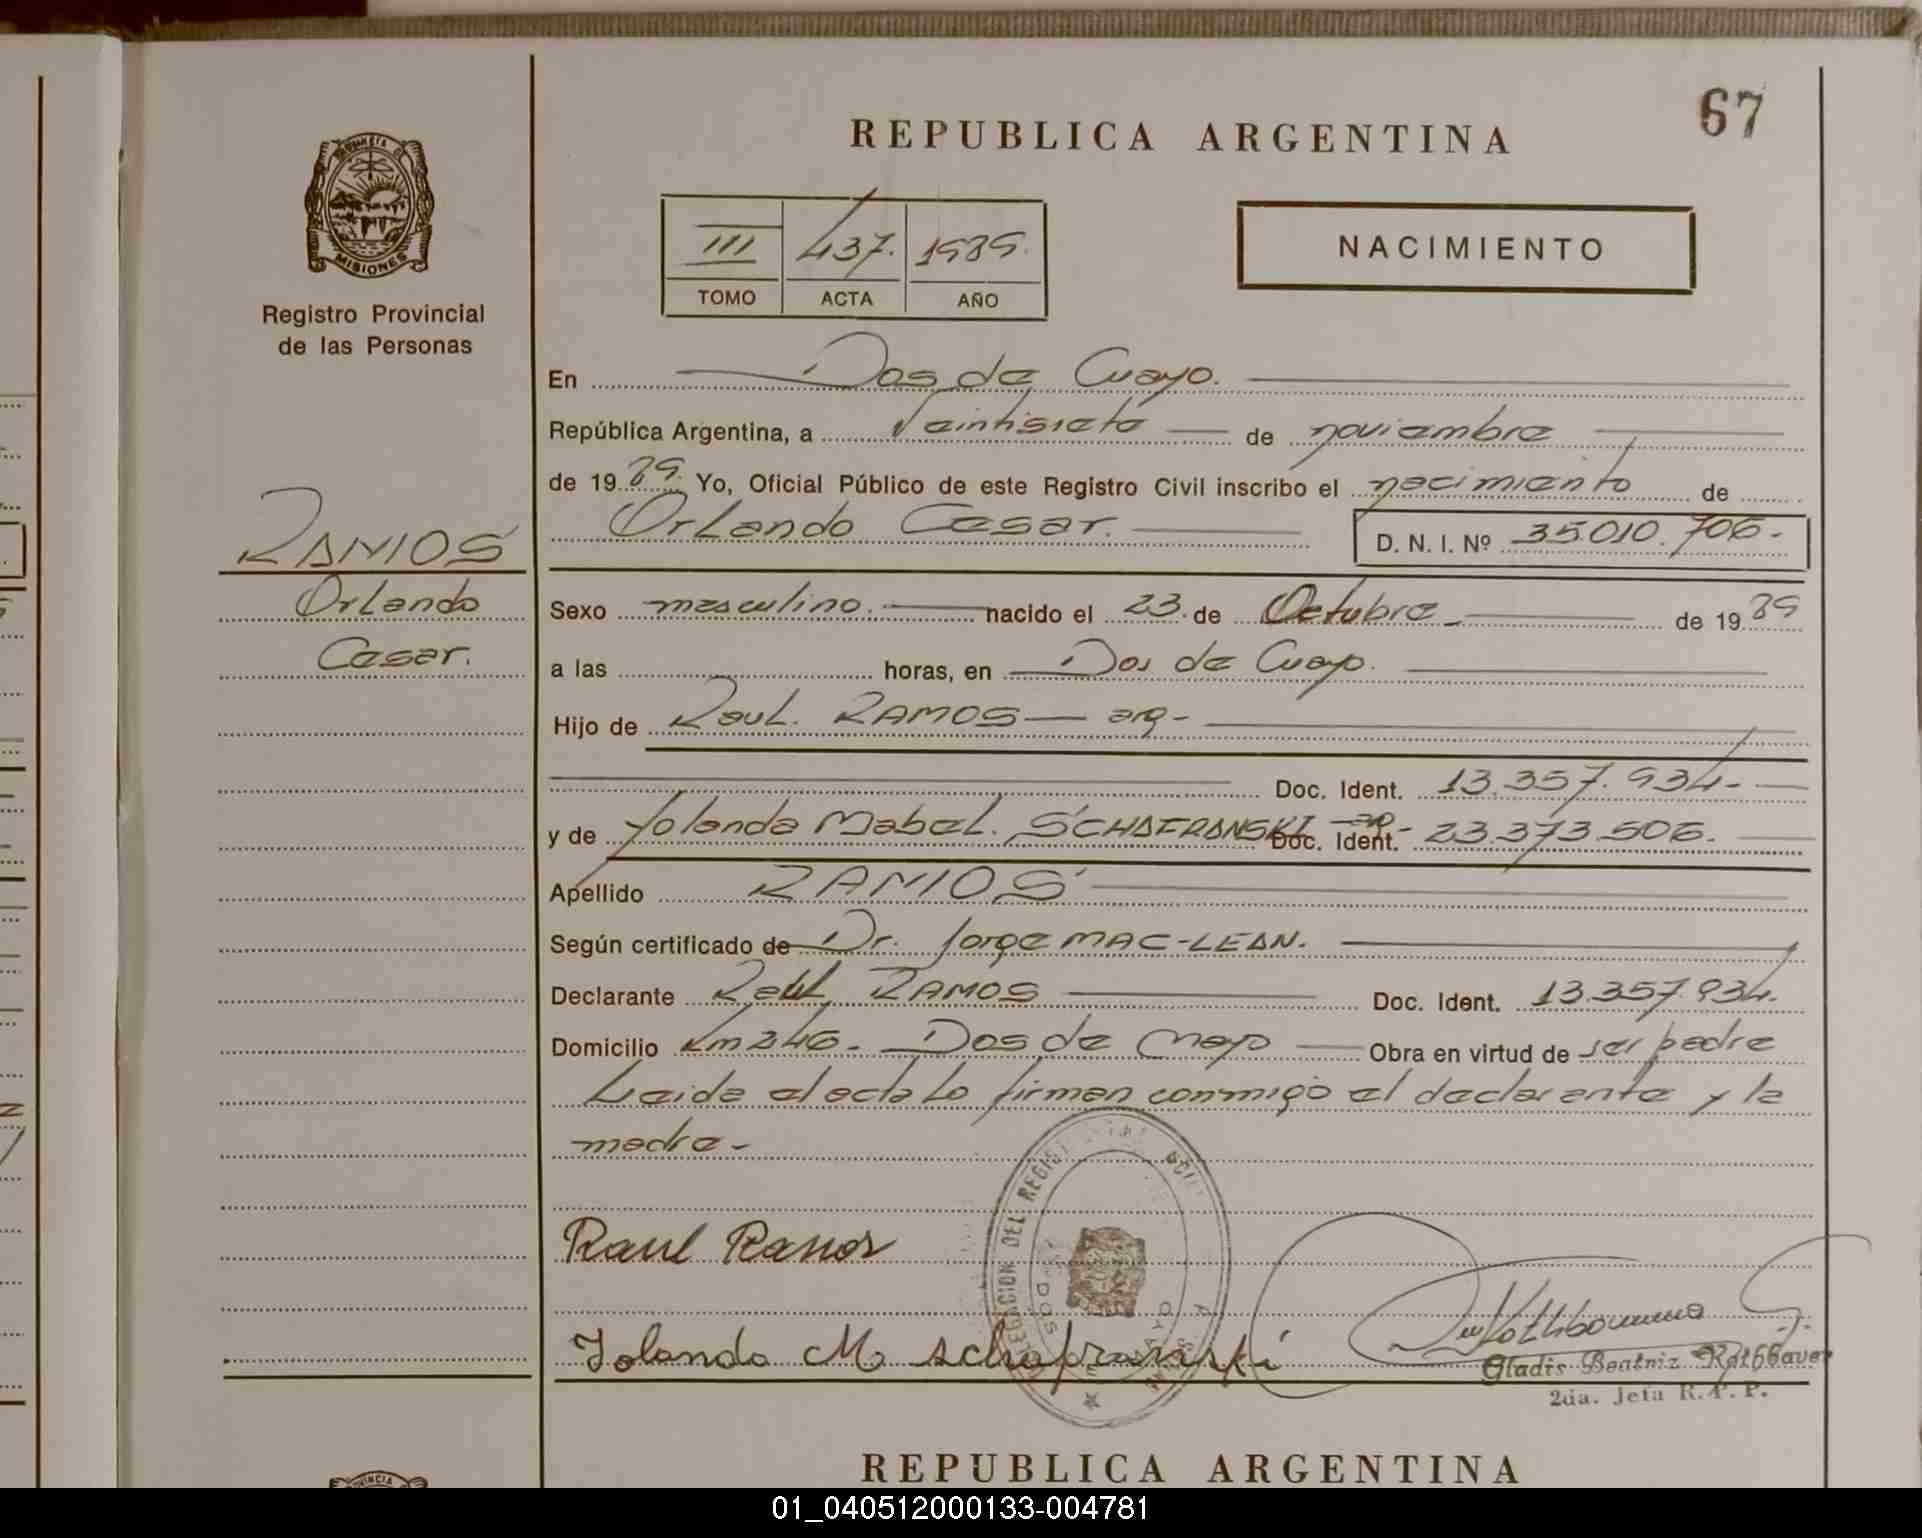 67
REPUBLICA ARGENTINA
PROVINCIA DE
MISIONES
Registro Provincial
de las Personas
III 437. 1989.
TOMO ACTA AÑO
NACIMIENTO
En Dos de Mayo.
República Argentina, a Veintisiete de noviembre
de 1989. Yo, Oficial Público de este Registro Civil inscribo el nacimiento de
Orlando Cesar. D. N. I. Nº 35.010.706.-
RAMOS
Orlando
Cesar.
Sexo masculino. nacido el 23. de Octubre de 1989
a las horas, en Dos de Mayo.
Hijo de Raul. RAMOS arg-
Doc. Ident. 13.357.934.-
y de Yolanda Mabel. SCHAFRANSKI arg- Doc. Ident. 23.373.506.
Apellido RAMOS
Según certificado de Dr. Jorge MAC-LEAN.
Declarante Raul RAMOS Doc. Ident. 13.357.934.
Domicilio Km 246. Dos de Mayo Obra en virtud de ser padre
Leida el acta lo firman conmigo el declarante y la
madre-
Raul Ramos
DELEGACION DEL REGIST
DOS DE MAYO
Yolanda M schafranski
Gladis Beatriz Rothbauer
2da. Jefa R. P. P.
REPUBLICA ARGENTINA
01_040512000133-004781